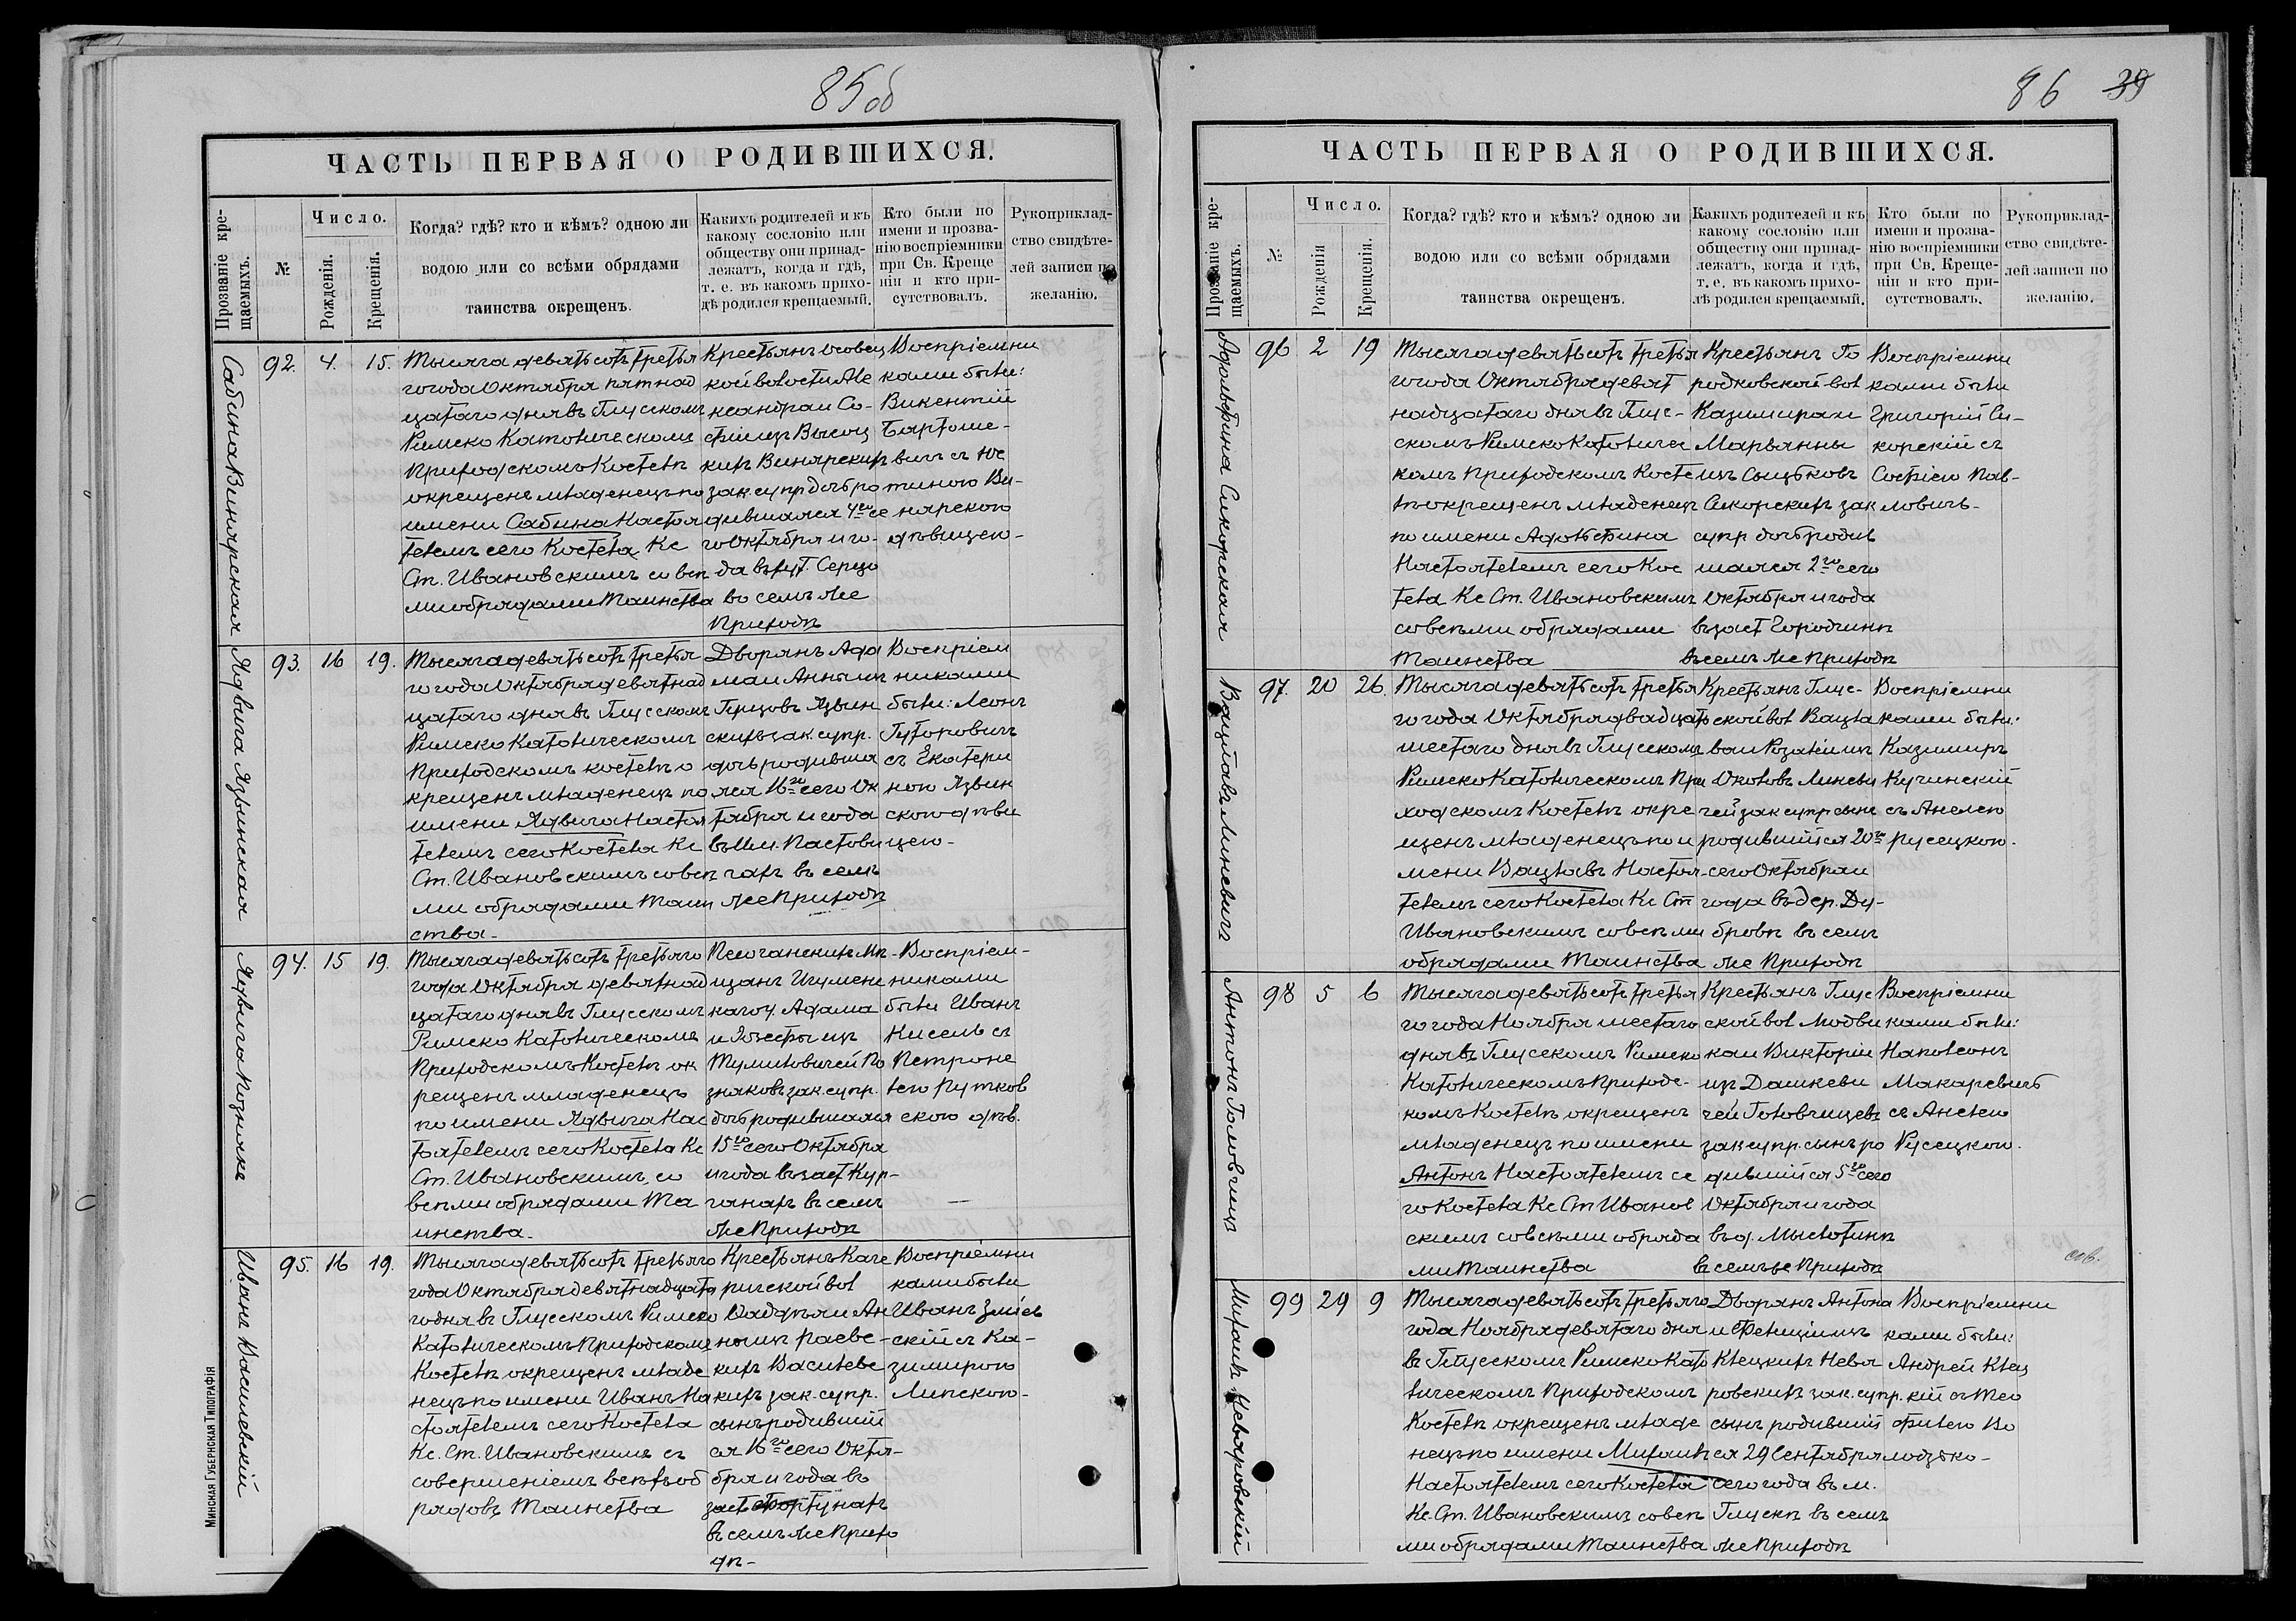 85об
ЧАСТЬ ПЕРВАЯ О РОДИВШИХСЯ.
Прозваніе кре-
щаемыхъ.
№
Число.
Рожденія.
Крещенія.
Когда? гдѣ? кто и кѣмъ? одною ли
водою или со всѣми обрядами
таинства окрещенъ.
Какихъ родителей и къ
какому сословію или
обществу они принад-
лежатъ, когда и гдѣ,
т. е. въ какомъ прихо-
дѣ родился крещаемый.
Кто были по
имени и прозва-
нію воспріемники
при Св. Креще
ніи и кто при-
сутствовалъ.
Рукоприклад-
ство свидѣте-
лей записи по
желанію.
Сабина Винярская
92. 4. 15.
Тысяча девятьсотъ третья
го года Октября пятнад
цатаго дня въ Глусскомъ
Римско Католическомъ
Приходскомъ Костелѣ
окрещенъ младенецъ по
имени Сабина Настоя
телемъ сего Костела Кс
Ст. Ивановскимъ со всѣ
ми обрядами Таинства
Крестьянъ Осовец
кой волости Але
ксандра и Со-
фіи изъ Высоц
кихъ Винярскихъ
зак. супр дочь ро
дившаяся 4го се
го Октября и го-
да въ
во семъ же
Приходѣ
Воспріемни
ками были:
Викентій
Бартоше-
вичъ съ Юс
тиною Ви-
нярскою
дѣвицею-
Ядвига Язвинская
93. 16 19.
Тысяча девятьсотъ третья
го года Октября девятнад
цатаго дня въ Глусскомъ
Римско Католическомъ
Приходскомъ костелѣ о
крещенъ младенецъ по
имени Ядвига Настоя
телемъ сего Костела Кс
Ст. Ивановскимъ со всѣ
ми обрядами Таин
ства-
Дворянъ Ада
ма и Анны изъ
Герцовъ Язвин
скихъ зак. супр.
дочь родивша
яся 16го сего Ок
тября и года
въ Им. Пастови
чахъ въ семъ
же Приходѣ
Воспріем
никами
были: Леонъ
Гуторовичъ
съ Екатери
ною Язвин
скою дѣви
цею-
Ядвига Позняке
94. 15 19.
Тысяча девятьсотъ третьяго
года Октября девятнад
цатаго дня въ Глусскомъ
Римско Католическомъ
Приходскомъ Костелѣ ок
рещенъ младенецъ
по имени Ядвига Нас
тоятелемъ сего Костела Кс
Ст. Ивановскимъ, со
всѣми обрядами Та
инства.
Песочанскихъ Мѣ-
щанъ Игумен
наго у. Адама
и Іозефы изъ
Тумиловичей По
зняковъ зак. супр.
дочь родившаяся
15го сего Октября
и года въ заст Кур-
ганахъ въ семъ
же Приходѣ
Воспріем-
никами
были Иванъ
Кисель съ
Петроне
лею Рутков
скою дѣв.
Иванъ Василевскій
95. 16 19.
Тысяча девятьсотъ третьяго
года Октября девятнадцата
го дня въ Глусскомъ Римско
Католическомъ Приходскомъ
Костелѣ окрещенъ младе
нецъ по имени Иванъ На
стоятелемъ сего Костела
Кс. Ст. Ивановскимъ съ
совершеніемъ всѣхъ об
рядовъ Таинства
Крестьянъ Каче
ричской вол
Фаддѣя и Ан
ны изъ Раевс-
кихъ Василевс
кихъ зак. супр.
сынъ родивший
ся 16го сего Октя-
бря и года въ
заст Фортунахъ
въ семъ же Прихо
дѣ-
Воспріемни
ками были
Иванъ Зміев
скій съ Ка-
зимирою
Липскою-
Минская Губернская Типографія
86 39
ЧАСТЬ ПЕРВАЯ О РОДИВШИХСЯ.
Прозваніе кре-
щаемыхъ.
№
Число.
Рожденія
Крещенія.
Когда? гдѣ? кто и кѣмъ? одною ли
водою или со всѣми обрядами
таинства окрещенъ.
Какихъ родителей и къ
какому сословію или
обществу они принад-
лежатъ, когда и гдѣ,
т. е. въ какомъ прихо-
дѣ родился крещаемый.
Кто были по
имени и прозва-
нію воспріемники
при Св. Креще-
ніи и кто при-
сутствовалъ.
Рукоприклад-
ство свидѣте-
лей записи по
желанію.
Адольфина Сикорская
96 2 19
Тысяча девятьсотъ третья
го года Октября девят
надцатаго дня въ Глус-
скомъ Римско Католичес
комъ Приходскомъ Косте
лѣ окрещенъ младенец
по имени Адольфина
Настоятелемъ сего Кос
тела Кс Ст. Ивановскимъ
со всѣми обрядами
Таинства
Крестьянъ Го
родковской вол
Казимира и
Марьянны
изъ Сыцьковъ
Сикорскихъ зак
супр дочь родив
шаяся 2го сего
Октября и года
въ заст Городчинѣ
въ семъ же Приходѣ
Воспріемни
ками были
Григорій Си-
корскій съ
Софією Пав-
ловичъ-
Вацлавъ Миневичъ
97. 20 26.
Тысяча девятьсотъ третья
го года Октября двадцать
шестаго дня въ Глусскомъ
Римско Католическомъ При
ходскомъ Костелѣ окре
щенъ младенецъ по и
мени Вацлавъ Настоя-
телемъ сего Костела Кс Ст
Ивановскимъ со всѣми
обрядами Таинства
Крестьянъ Глус-
ской вол Вацла
ва и Розаліи изъ
Околовъ Миневи
чей зак супр сынъ
родившійся 20го
сего Октября и
года въ дер. Ду-
бровѣ въ семъ
же Приходѣ
Воспріемни
ками были:
Казимиръ
Кучинскій
съ Анелею
Русецкою.
Антонъ Головчицъ
98 5 6
Тысяча девятьсотъ третья
го года Ноября шестаго
дня въ Глусскомъ Римско
Католическомъ Приходс-
комъ Костелѣ окрещенъ
младенецъ по имени
Антонъ Настоятелемъ се
го Костела Кс Ст Иванов
скимъ со всѣми обряда
ми Таинства
Крестьянъ Глус
ской вол Людви
ка и Викторіи
изъ Дашкеви
чей Головчицевъ
зак. супр. сынъ ро
дившійся 5го сего
Октября и года
въ д. Мыслотинѣ
въ семъ же Приходѣ
Воспріемни
ками были:
Наполеонъ
Макаревичъ
съ Анелею
Русецкою.
Михаилъ Невяровскій
99 29 9
Тысяча девятьсотъ третьяго
года Ноября девятаго дня
въ Глусскомъ Римско Като
лическомъ Приходскомъ
Костелѣ окрещенъ младе
нецъ по имени Михаилъ
Настоятелемъ сего Костела
Кс. Ст. Ивановскимъ со всѣ
ми обрядами Таинства
Дворянъ Антона
и Фелиціи изъ
Клецкихъ Невя
ровскихъ зак. супр.
сынъ родивший
ся 29 Сентября
сего года въ м.
Глускѣ въ семъ
же Приходѣ
Воспріемни
ками были:
Андрей Клец
кій съ Тео
филею Во
лодзько-